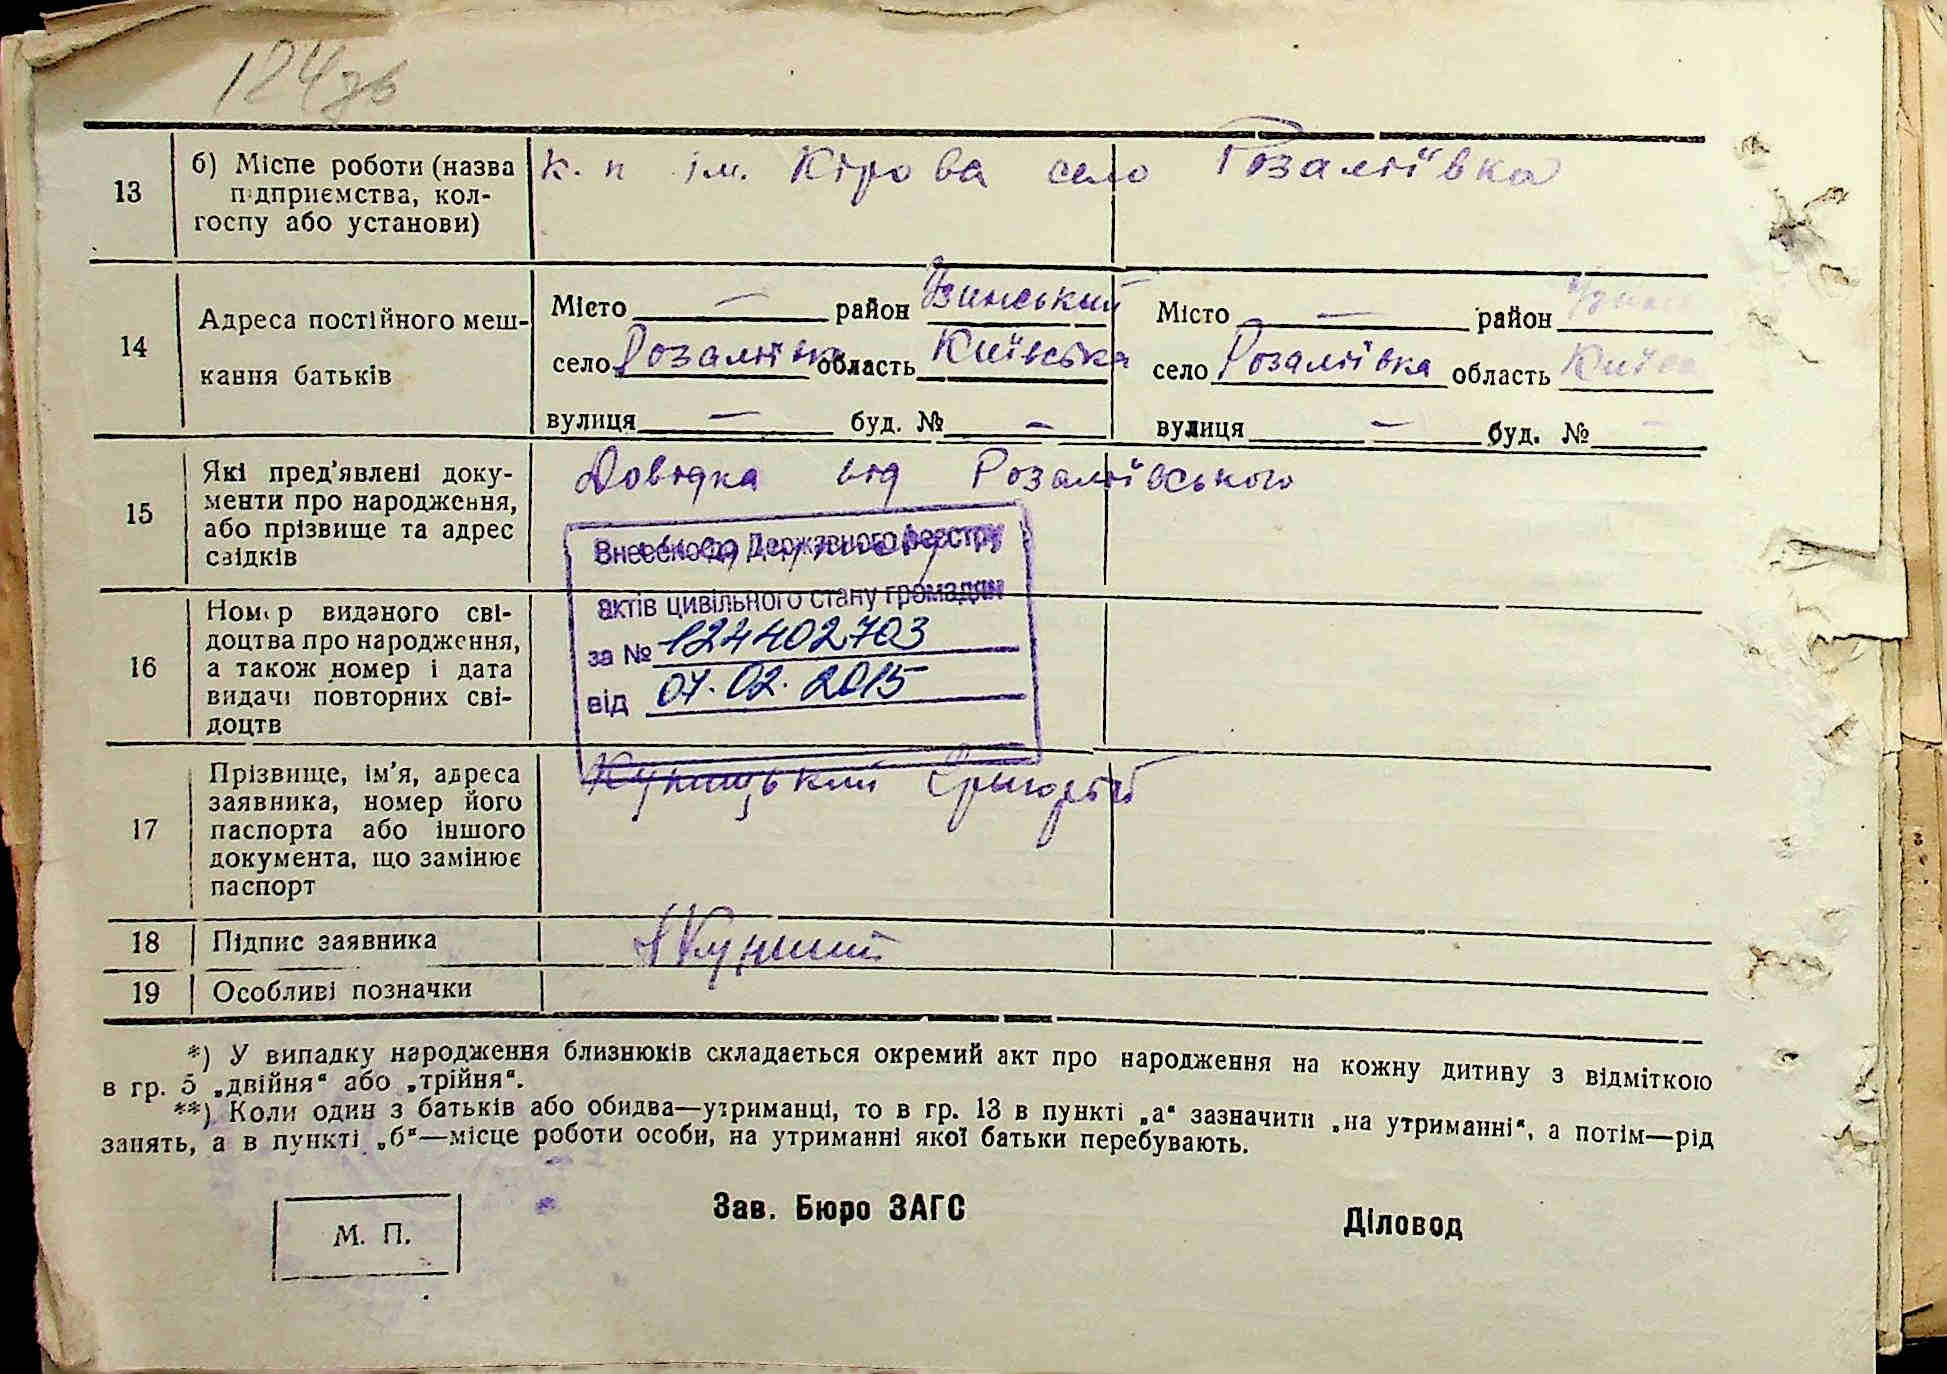 124 зв
13
б) Місце роботи (назва
підприємства, кол-
госпу або установи)
к. п ім. Кірова село Розаліївка
14
Адреса постійного меш-
кання батьків
Місто — район Узинський
село Розаліївка область Київська
вулиця — буд. № —
Місто — район
село Розаліївка область Київс
вулиця — буд. № —
15
Які пред'явлені доку-
менти про народження,
або прізвище та адрес
свідків
Довідка від Розаліївського
Внесено до Державного реєстру
актів цивільного стану громадян
за № 124402703
від 07.02.2015
16
Номер виданого сві-
доцтва про народження,
а також номер і дата
видачі повторних сві-
доцтв
17
Прізвище, ім'я, адреса
заявника, номер його
паспорта або іншого
документа, що замінює
паспорт
18
Підпис заявника
19
Особливі позначки
*) У випадку народження близнюків складається окремий акт про народження на кожну дитину з відміткою
в гр. 5 „двійня“ або „трійня“.
**) Коли один з батьків або обидва—утриманці, то в гр. 13 в пункті „а“ зазначити „на утриманні“, а потім—рід
занять, а в пункті „б“—місце роботи особи, на утриманні якої батьки перебувають.
М. П.
Зав. Бюро ЗАГС
Діловод